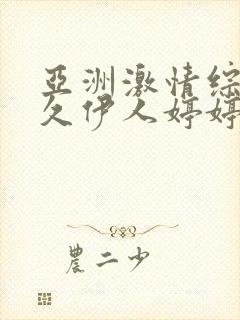 亞洲激情綜
久伊人婷婷
農二少